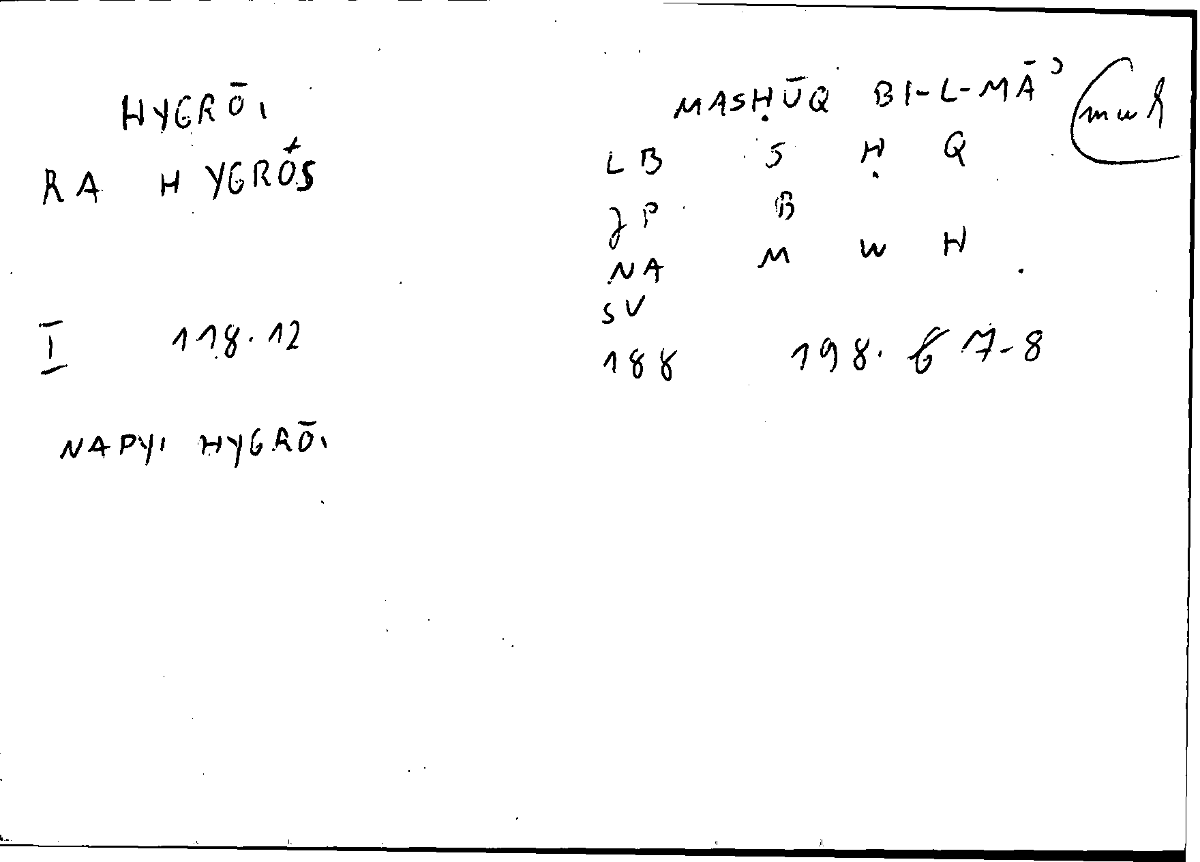 HYGRŌI
RA HYGRÓS
I 118.12
NAPYI HYGRŌI
MASḤŪQ BI-L-MĀʾ mwh
LB S Ḥ Q
JP B
NA M W H
SV
188 198. 6 7-8